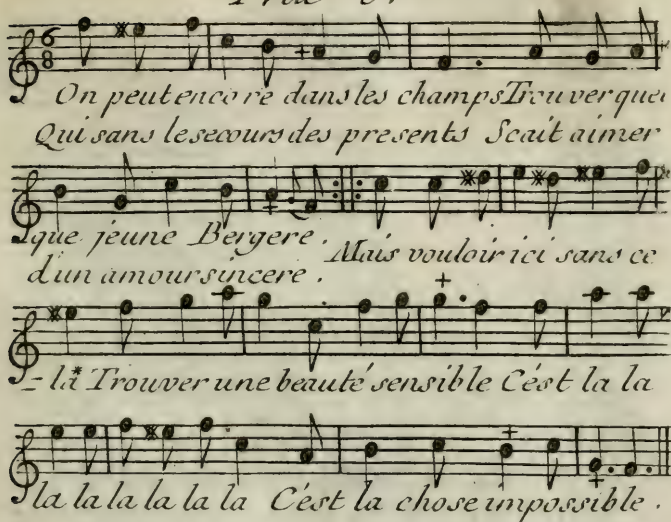 6
8
On peut encore dans les champs Trouver quel
Qui sans le secours des presents Scait aimer
que jeune Bergere. Mais vouloir ici sans ce
d'un amour sincere.
- la* Trouver une beauté sensible C'ést la la
la la la la la la C'ést la chose impossible.